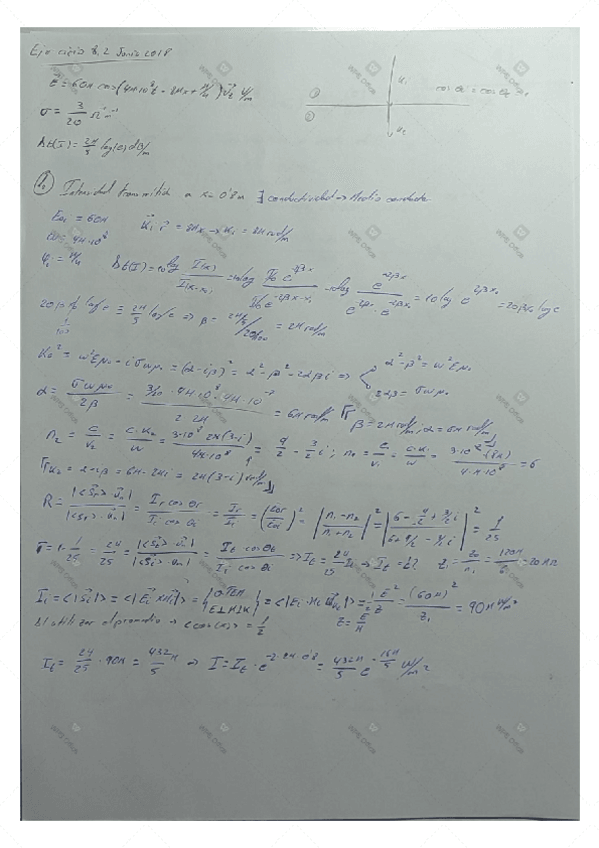 Ejercicio 8.2 Junio 2018
E = 60π cos(4π·10⁸t - 8πx + π/4) u_t V/m
σ = 3/20 Ω⁻¹m⁻¹
cos θi = cos θt
①
②
u_i
u_t
Δt(I) = 2π/5 log(e) dB/m
a) Intensidad transmitida a x = 0'8m ∃ conductividad → Medio conductor
E_0i = 60π K_i r = 8πx → K_i = 8π rad/m
ω = 4π·10⁸
φ_i = π/4 Δt(I) = 10 log I(x)/I(x-x_0)
= 10 log e^2βx = 20βx log e
log e = 2π/5 log e ⇒ β = = 2π rad/m
K_2² = ω²εμ_0 - iσωμ_0 = (α-iβ)² = α²-β²-2αβi ⇒ α²-β² = ω²εμ_0
2αβ = σωμ_0
α = σωμ_0/2β = 3/20·4π·10⁸·4π·10⁻⁷/2·2π = 6π rad/m β = 2π rad/m; α = 6π rad/m
n_2 = c/v_2 = c·K_2/ω = 3·10⁸·2π(3-i)/4π·10⁸ = 9/2 - 3/2 i ; n_1 = c/v_1 = c·K_1/ω = 3·10⁸(8π)/4·π·10⁸ = 6
K_2 = α-iβ = 6π-2πi = 2π(3-i) rad/m
R = |<S_r>·u_n|/|<S_i>·u_n| = I_r cos θr/I_i cos θi = I_r/I_i = (E_0r/E_0i)² = |n_1-n_2/n_1+n_2|² = |6-9/2+3/2 i/6+9/2-3/2 i|² = 1/25
T = 1-1/25 = 24/25 = |<S_t>·u_n|/|<S_i>·u_n| = I_t cos θt/I_i cos θi ⇒ I_t = 24/25 I_i ⇒ I_t = ¿? Z_1 = Z_0/n_1 = 120π/6 = 20πΩ
I_i = <|S_i|> = <|E_i×H_i|> = {OTEM E⊥H⊥K} = <|E_i·H_i u|> = 1/2 E²/Z = (60π)²/Z_1 = 90π W/m²
Z = E/H
Al utilizar el promedio → <cos²(x)> = 1/2
I_t = 24/25·90π = 432π/5 ⇒ I = I_t·e^-2·2π·0'8 = 432π/5 e^-16π/5 W/m²